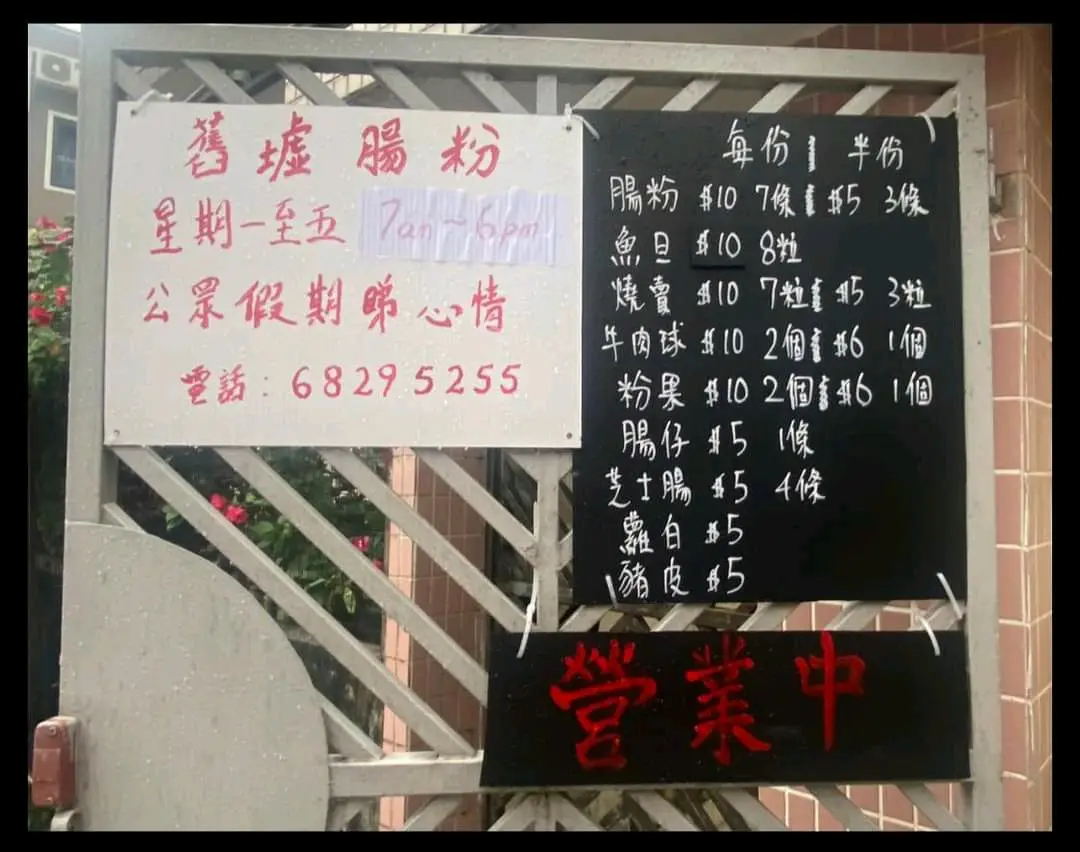 舊墟腸粉
星期一至五 7am~6pm
公眾假期睇心情
電話：68295255
每份 半份
腸粉 $10 7條 $5 3條
魚旦 $10 8粒
燒賣 $10 7粒 $5 3粒
牛肉球 $10 2個 $6 1個
粉果 $10 2個 $6 1個
腸仔 $5 1條
芝士腸 $5 4條
蘿白 $5
豬皮 $5
營業中